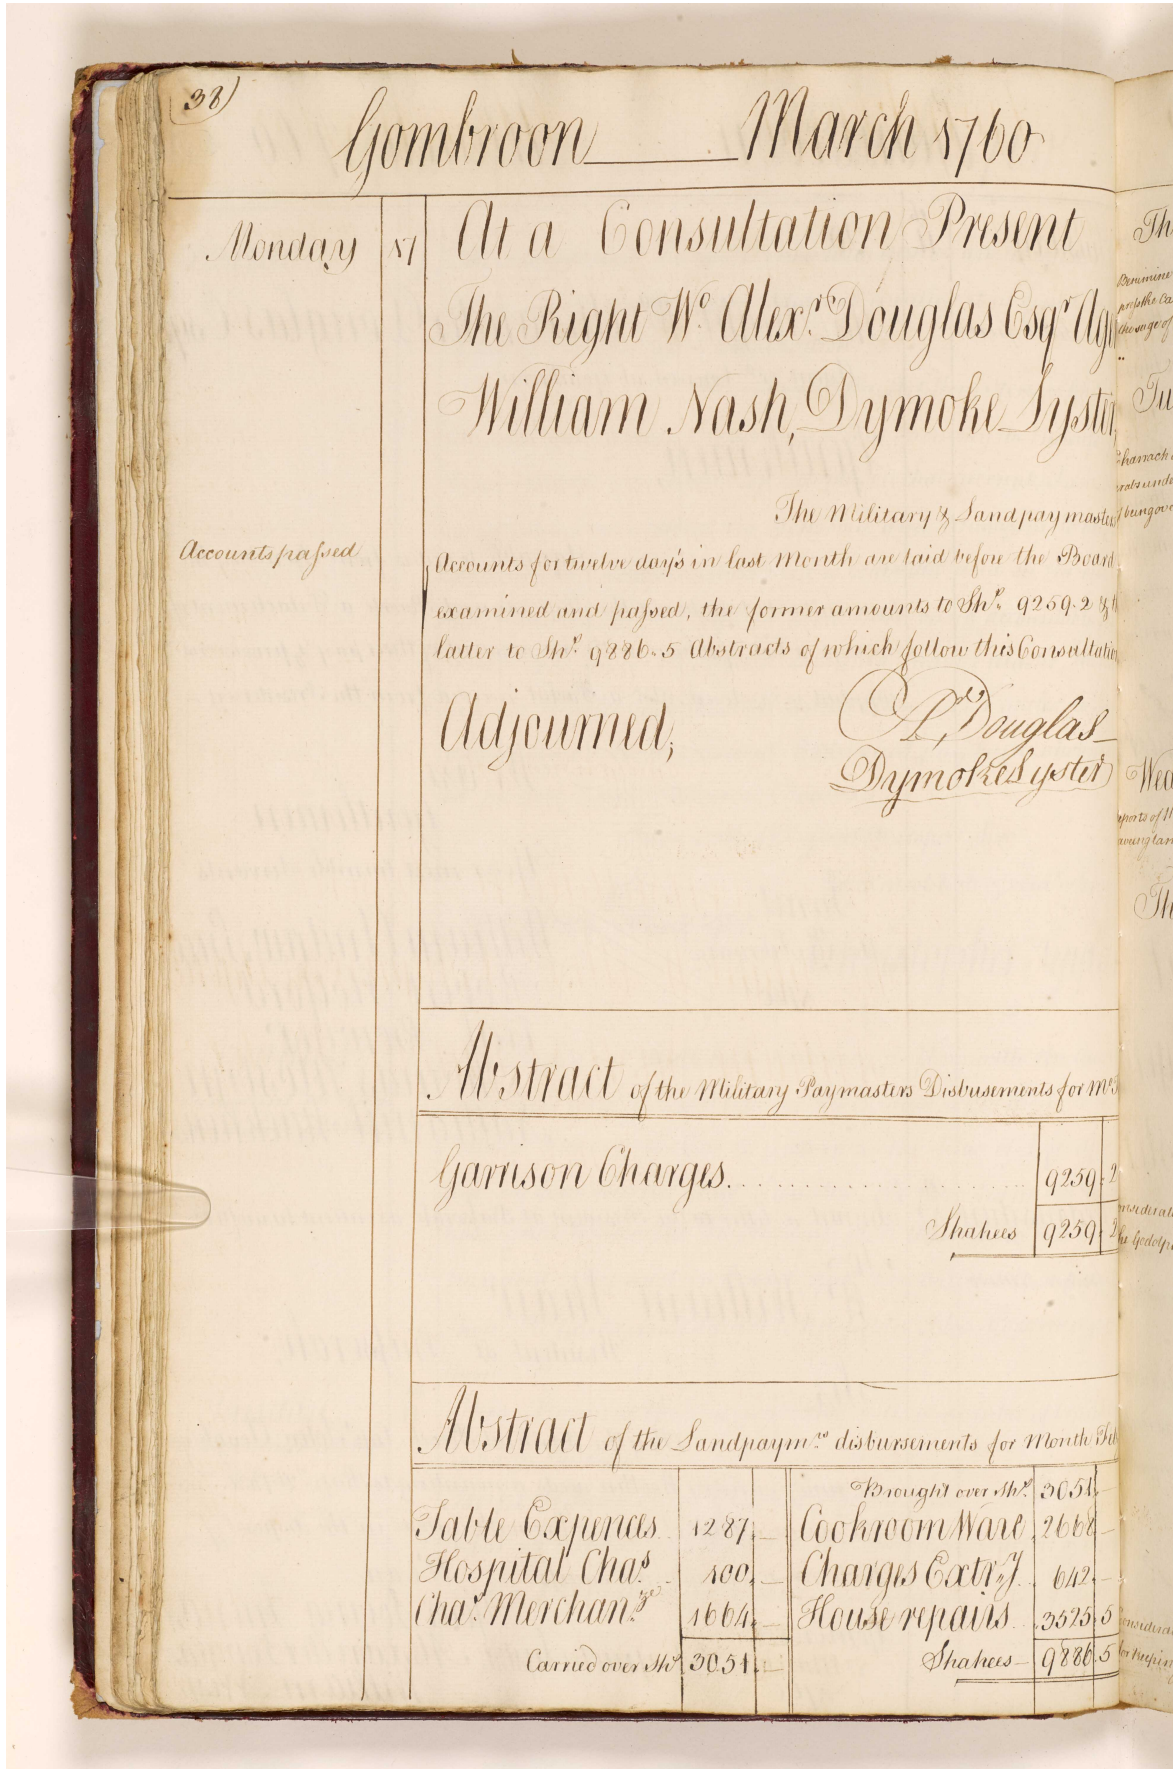 38)
Gombroon March 1760
Monday 17 At a Consultation Present
The Right Wo. Alexr. Douglas Esqr Ag
William Nash, Dymoke Lyster,
The Military & Landpaymaster
Accounts passed
Accounts for twelve day's in last Month are laid before the Board
examined and passed, the former amounts to Shs. 9259.2 & 
latter to Shs. 9886.5 Abstracts of which follow this Consultation
Adjourned;
A Douglas
Dymoke Lyster
Abstract of the Military Paymasters Disbusements for Mo.
Garrison Charges. 9259. 2
Shahees 9259. 2
Abstract of the Landpaymrs disbursements for Month Feb
Brought over Shs. 3051. —
Table Expences 1287. — Cookroom Ware 2668 —
Hospital Chas. 100. — Charges Extry. 642. —
Chas. Merchanze. 1664. — House repairs 3525. 5
Carried over Shs. 3051. — Shahees — 9886. 5
Th
Tu
Wed
Th